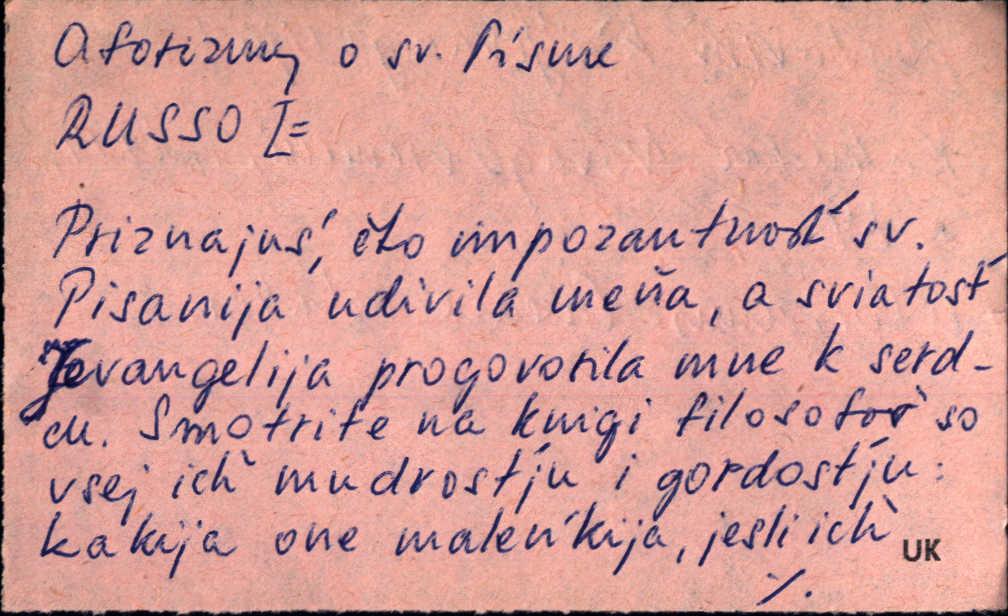 Aforizmy o sv. Písme
RUSSO I=
Priznajuś, čto impozantnosť sv.
Pisanija udivila meňa, a sviatosť
Jevangelija progovorila mne k serd-
cu. Smotrite na knigi filosofov so
vsej ich mudrosťju i gordosťju:
kakija one maleńkija, jesli ich
UK
./.